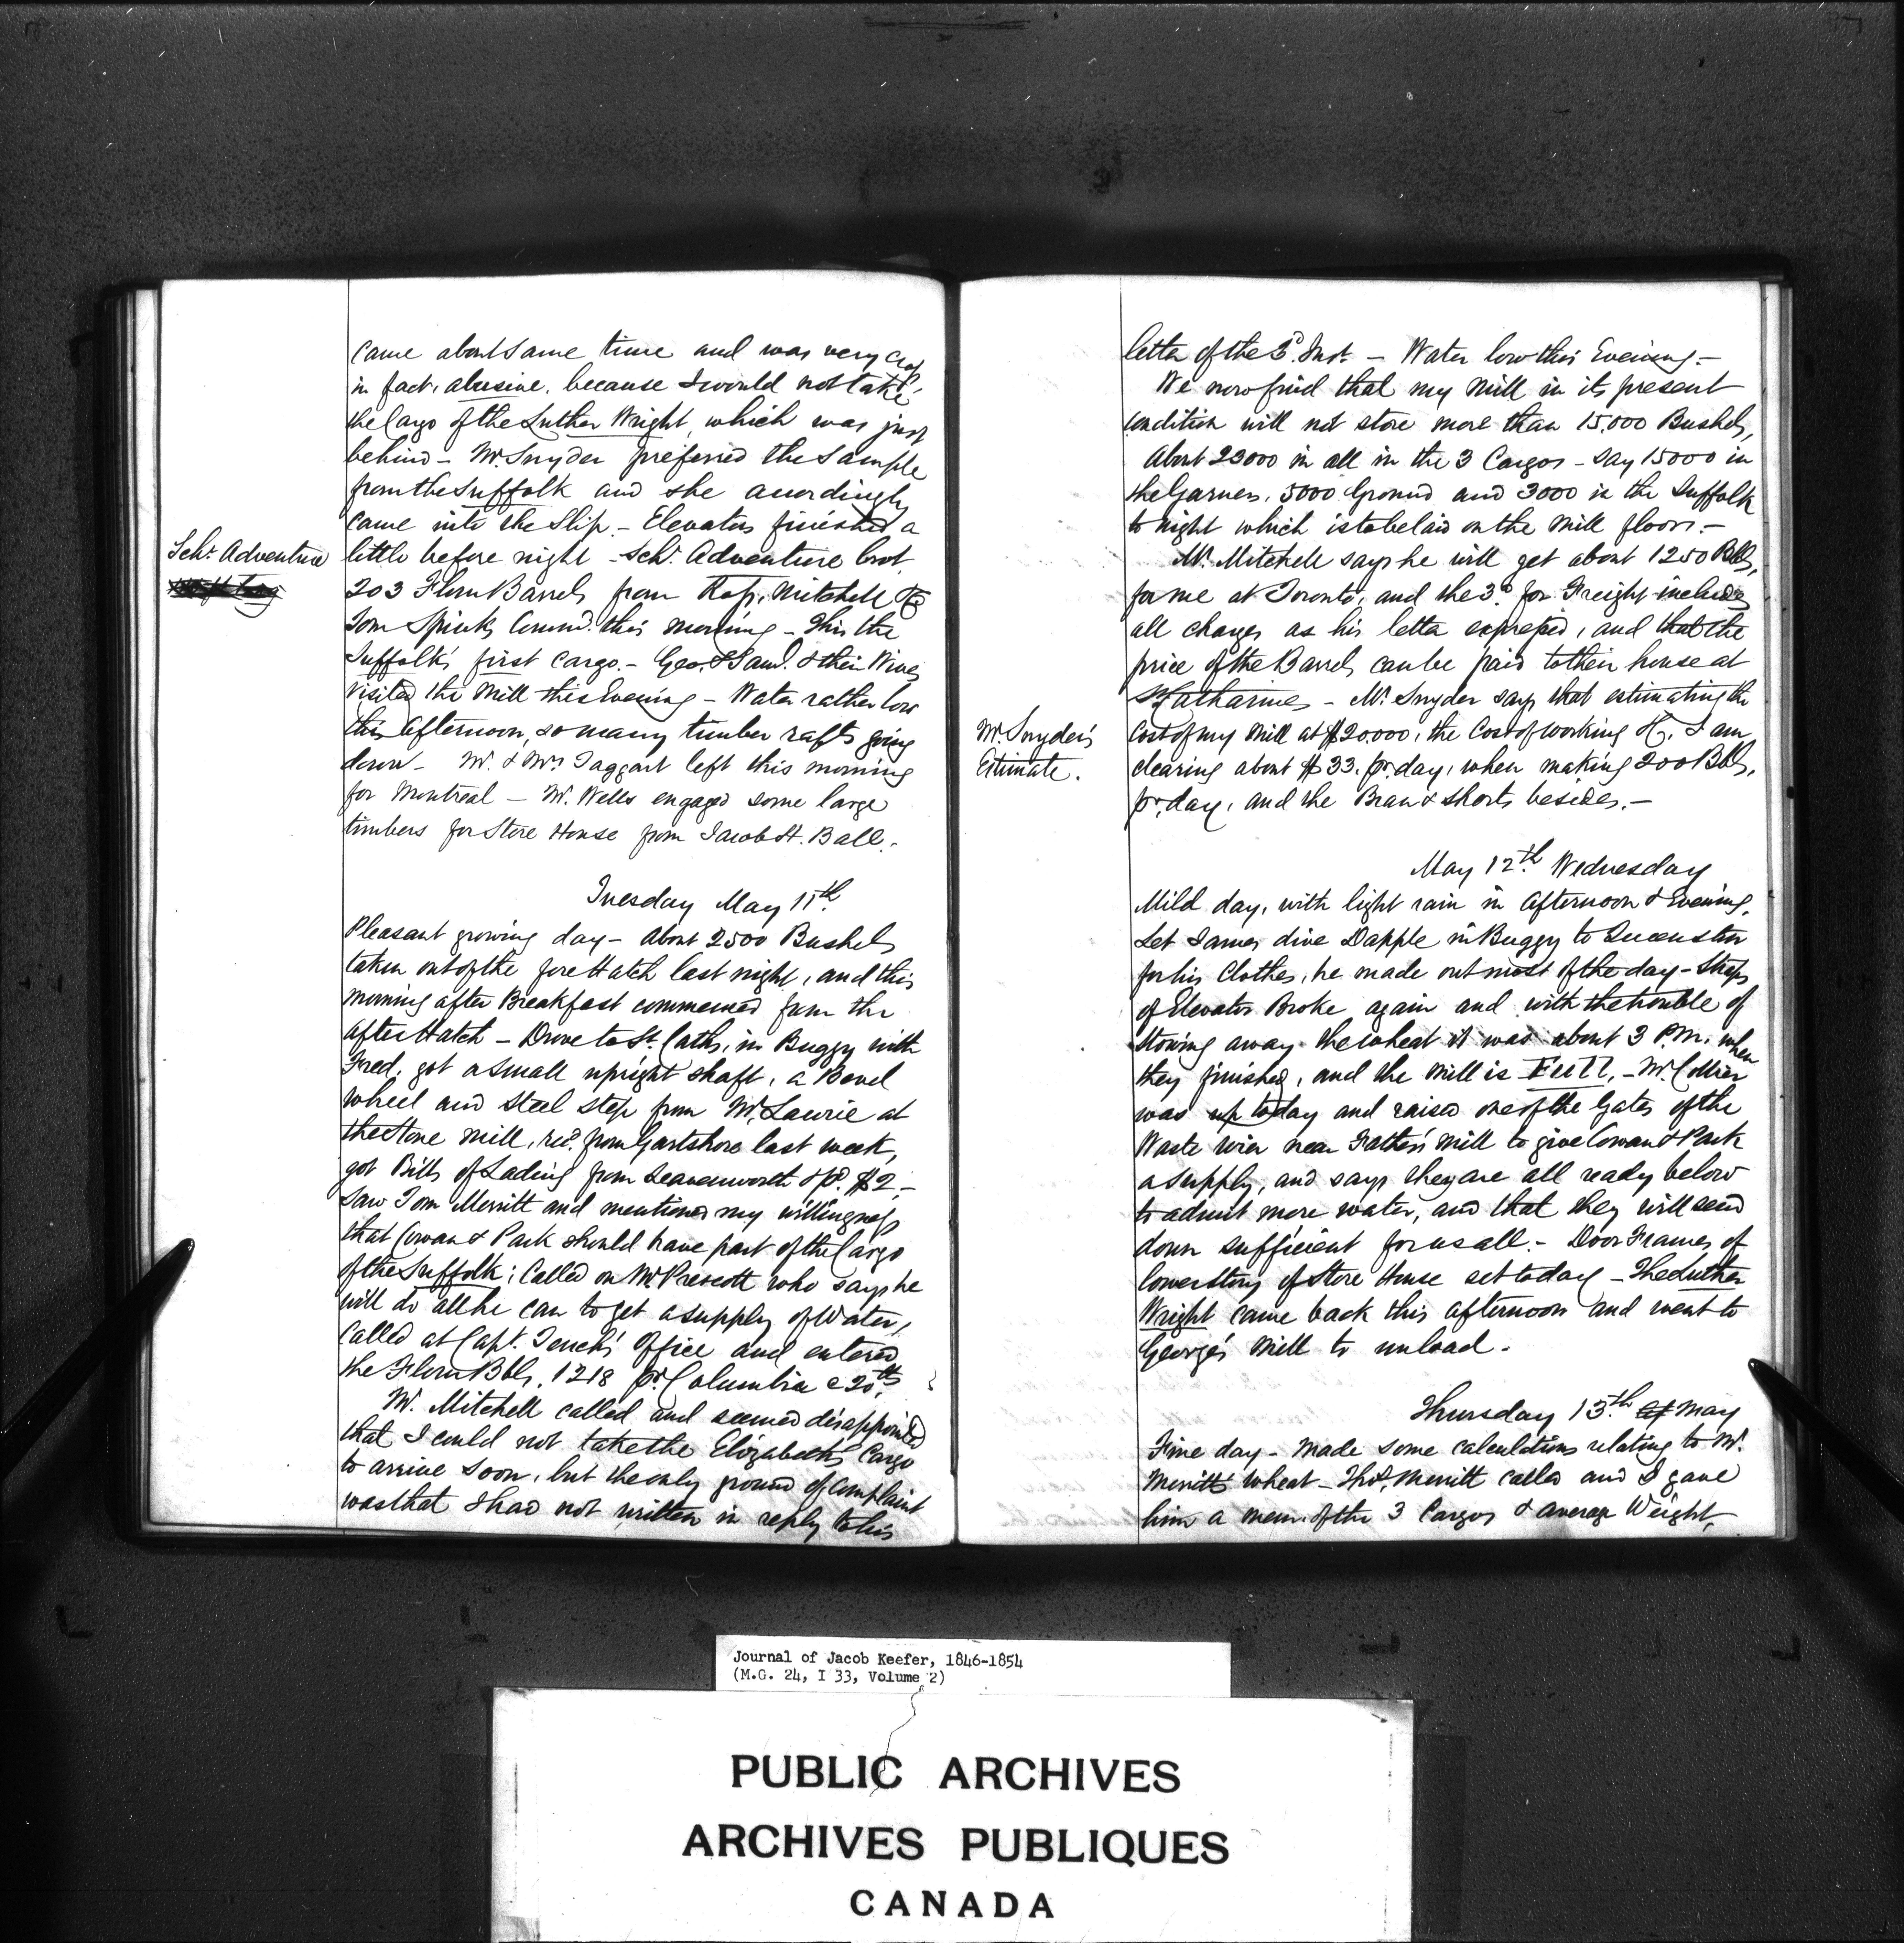 came about same time and was very cross
in fact, abusive, because I would not take
the Cargo of the Luther Wright, which was just
behind - Mr. Snyder preferred the sample
from the Suffolk and she accordingly
came into the Slip. - Elevators finished a
Schr. Adventure
little before night - Schr. Adventure brot.
203 Flour Barrels from Ross, Mitchell & Co
Tom Spink, Command. this morning - this the
Suffolk's first Cargo. - Geo. & Saml. & their Wives
visited the Mill this Evening - Water rather low
this afternoon, so many timber rafts going
down - Mr. & Mrs Taggart left this morning
for Montreal - Mr. Wells engaged some large
timbers for Store House from Jacob H. Ball. -
Tuesday May 11th.
Pleasant growing day - About 2500 Bushels
taken out of the fore Hatch last night, and this
morning after Breakfast commenced from the
after Hatch - Drove to St. Caths, in Buggy with
Fred, got a small upright shaft, a Bevel
wheel and steel step from Mr. Lawrie at
the Stone Mill, recd. from Gartshore last week,
got Bills of Lading from Leavenworth & pd. $2, -
saw Tom Merritt and mentioned my willingness
that Cowan & Park should have part of the Cargo
of the Suffolk; Called on Mr. Prescott who says he
will do all he can to get a supply of Water,
Called at Capt. Tench's Office and entered
the Flour Bbls. 1218 pr. Columbia 20th.
Mr. Mitchell called and seemed disappointed
that I could not take the Elizabeth's Cargo
to arrive soon, but the only ground of complaint
was that I had not written in reply to his
letter of the 3d. Inst. - Water low this Evening. -
We now find that my Mill in its present
condition will not store more than 15,000 Bushels,
About 23000 in all in the 3 Cargos - Say 15000 in
the Garners, 5000 Ground and 3000 in the Suffolk
to night which is to be laid on the Mill floors. -
Mr. Mitchell says he will get about 1250 Bbls,
for me at Toronto, and the 3d. for Freight includes
all charges as his letter expressed, and that the
price of the Barrels can be paid to their house at
St Catharines - Mr. Snyder says that estimating the
Mr. Snyder's
Estimate.
Cost of my Mill at $20.000, the Cost of working &c, I am
clearing about $33. pr. day, when making 200 Bbls,
pr. day, and the Bran & Shorts besides. -
May 12th. Wednesday
Mild day, with light rain in Afternoon & Evening,
Let James drive Dapple in Buggy to Queenston
for his Clothes, he made out most of the day - Straps
of Elevator Broke again and with the trouble of
stowing away the wheat it was about 3 P.M. when
they finished, and the Mill is Full, - Mr. Collier
was up today and raised one of the Gates of the
Waste Wier near Father's Mill to give Cowan & Park
a supply, and says they are all ready below
to admit more water, and that they will send
down sufficient for us all. - Door Frames of
lower Story of Store House set today - The Luther
Wright came back this afternoon and went to
George's Mill to unload.
Thursday 13th. of May
Fine day - Made some calculations relating to Mr.
Merritt's Wheat - Thos. Merritt called and I gave
him a mem. of the 3 Cargos & average Weight, -
Journal of Jacob Keefer, 1846-1854
(M.G. 24, I 33, Volume 2)
PUBLIC ARCHIVES
ARCHIVES PUBLIQUES
CANADA